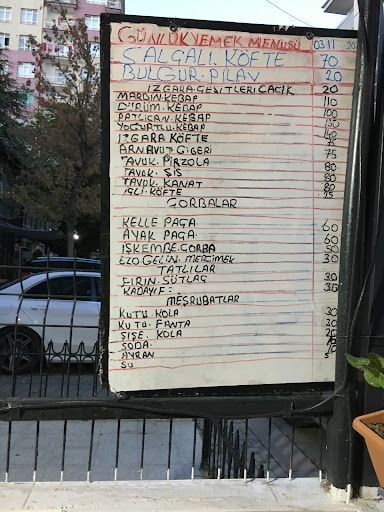 GÜNLÜK YEMEK MENÜSÜ 03.11 20
SALÇALI. KÖFTE 70
BULGUR. PİLAV 20
IZGARA ÇEŞİTLERİ CACIK 20
MARDİN KEBAP 110
DÜRÜM. KEBAP 100
PATLICAN. KEBAP
YOGURTLU. KEBAP 140
IZGARA KÖFTE 75
ARNAVUT CİGERİ 75
TAVUK. PİRZOLA 80
TAVUK. ŞİS 80
TAVUK. KANAT 80
İÇLİ. KÖFTE
ÇORBALAR
KELLE PAÇA 60
AYAK PAÇA 60
İŞKEMBE ÇORBA 50
EZO GELİN. MERCİMEK 30
TATLILAR
FIRIN. SÜTLAÇ 30
KADAYIF: 35
MEŞRUBATLAR
KUTU. KOLA 30
KUTU. FANTA 20
ŞİŞE. KOLA 20
SODA.
AYRAN
SU